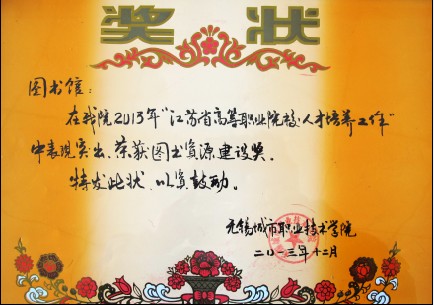 奖状
图书馆：
在我院2013年“江苏省高等职业院校人才培养工作”
中表现突出，荣获图书资源建设奖。
特发此状，以资鼓励。
无锡城市职业技术学院
二〇一三年十二月